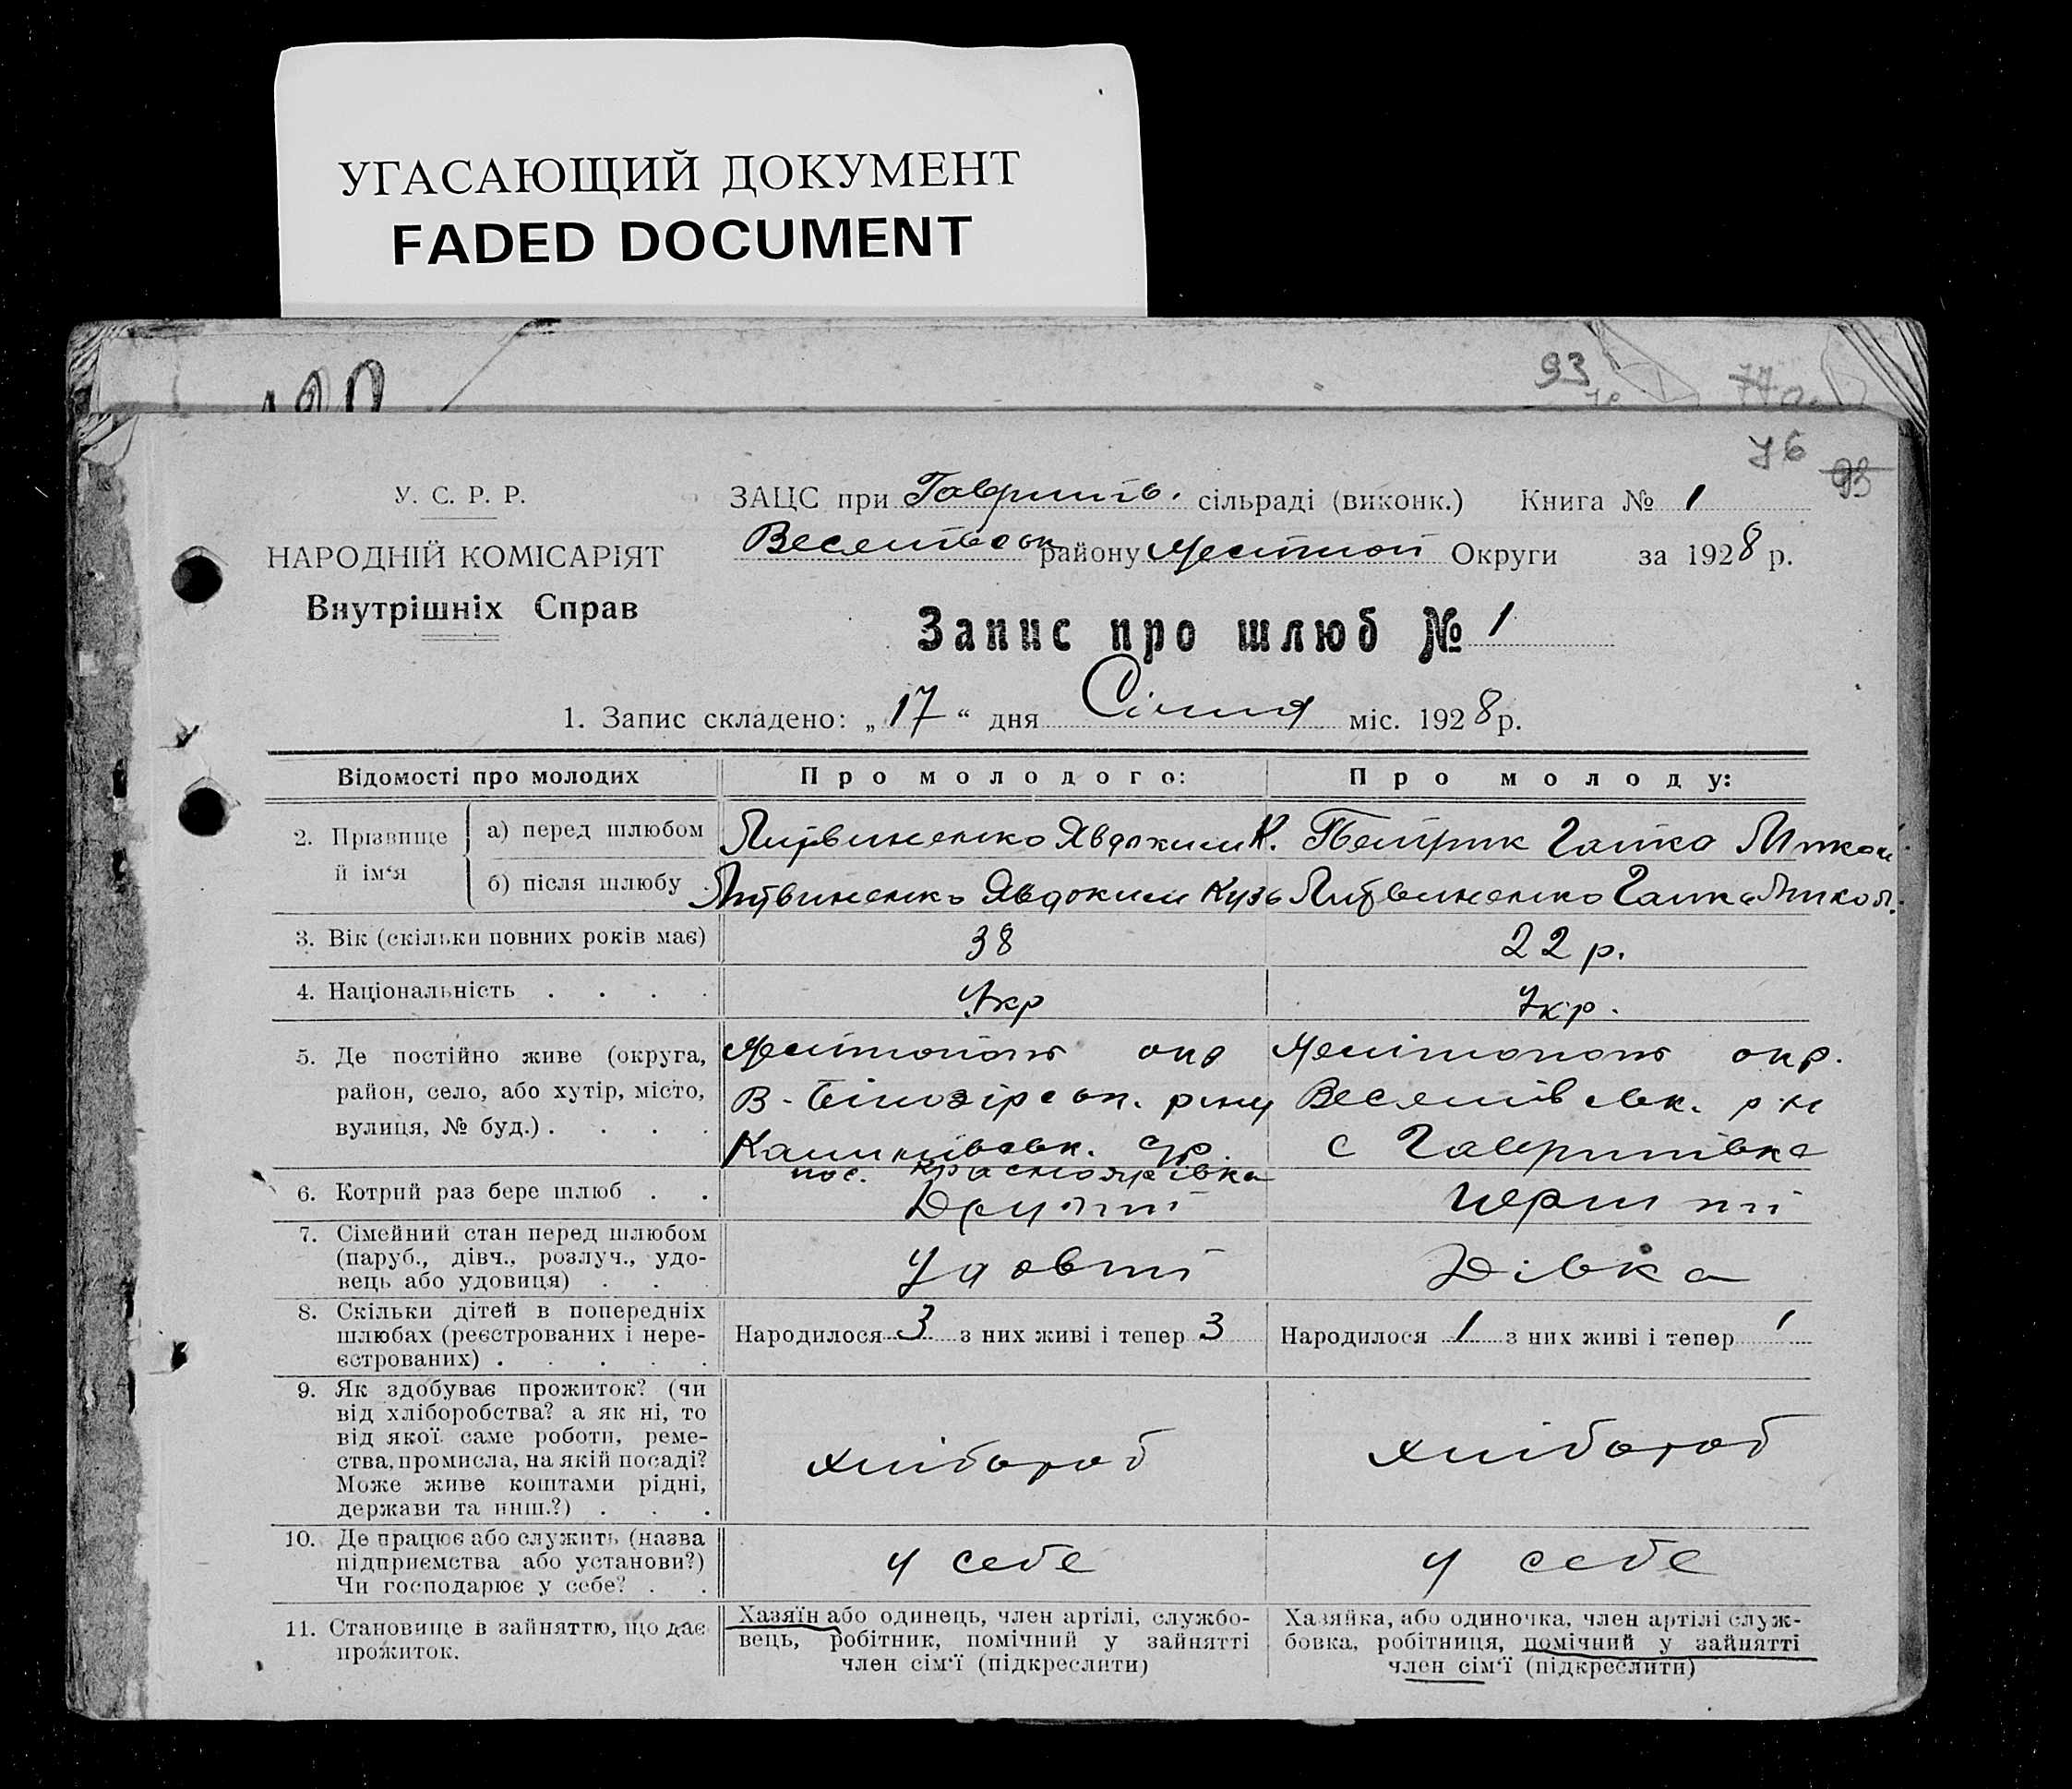 УГАСАЮЩИЙ ДОКУМЕНТ
FADED DOCUMENT
93
76
93
У. С. Р. Р.
НАРОДНІЙ КОМІСАРІЯТ
Внутрішніх Справ
ЗАЦС при Гаврилів. сільраді (виконк.) Книга № 1
Веселівськ району Меліт Округи за 1928 р.
Запис про шлюб № 1
1. Запис складено: „17“ дня Січня міс. 1928 р.
Відомості про молодих
Про молодого:
Про молоду:
2. Прізвище й ім‘я
а) перед шлюбом
Литвиненко Явдоким К.
Петрик Галка Микол
б) після шлюбу .
Литвиненко Явдоким Кузь
Литвиненко Галка Микол.
3. Вік (скільки повних років має)
38
22 р.
4. Національність . . . .
Укр
Укр.
5. Де постійно живе (округа,
район, село, або хутір, місто,
вулиця, № буд.) . . . .
Мелітополь окр
В-Білозірськ. р-ну
с/р.
пос. Красноярівка
Мелітополь окр.
Веселівськ. р-н
с Гаврилівка
6. Котрий раз бере шлюб . .
Другий
перший
7. Сімейний стан перед шлюбом
(паруб., дівч., розлуч., удо-
вець або удовиця) . . .
Удовий
Дівка
8. Скільки дітей в попередніх
шлюбах (реєстрованих і нере-
єстрованих) . . . . .
Народилося 3 з них живі і тепер 3
Народилося 1 з них живі і тепер 1
9. Як здобуває прожиток? (чи
від хліборобства? а як ні, то
від якої саме роботи, реме-
ства, промисла, на якій посаді?
Може живе коштами рідні,
держави та инш.?) . . .
хлібороб
хлібороб
10. Де працює або служить (назва
підприємства або установи?)
Чи господарює у себе? . .
у себе
у себе
11. Становище в зайняттю, що дає
прожиток.
Хазяїн або одинець, член артілі, службо-
вець, робітник, помічний у зайнятті
член сім‘ї (підкреслити)
Хазяйка, або одиночка, член артілі служ-
бовка, робітниця, помічний у зайнятті
член сім‘ї (підкреслити)